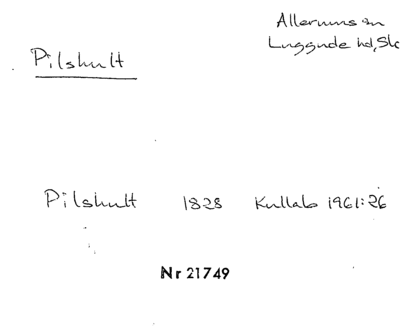 Allerums sn
Luggude hd, Sk
Pilshult
Pilshult 1828 Kullab 1961:26
Nr 21749